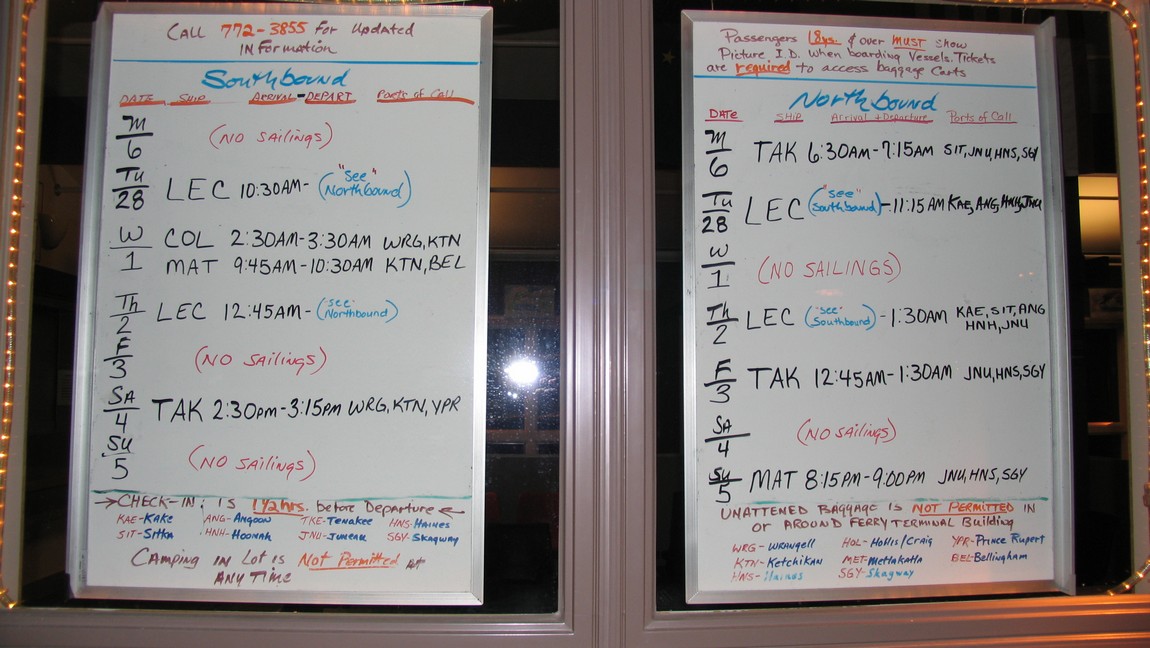 CALL 772-3855 For Updated
INFormation
Southbound
DATE SHIP ARRIVAL-DEPART Ports of Call
M
6
(NO SAILINGS)
Tu
28
LEC 10:30AM- ("See" Northbound)
W
1
COL 2:30AM-3:30AM WRG, KTN
MAT 9:45AM-10:30AM KTN, BEL
Th
2
LEC 12:45AM- ("see" Northbound)
F
3
(NO SAILINGS)
SA
4
TAK 2:30PM-3:15PM WRG, KTN, YPR
SU
5
(NO SAILINGS)
→CHECK-IN: IS 1 1/2 hrs. before Departure←
KAE-KAKE ANG-Angoon TKE-Tenakee HNS-Haines
SIT-Sitka HNH-Hoonah JNU-Juneau SGY-Skagway
CAMPING IN Lot IS Not Permitted At
ANY TIME
Passengers 18ys. & over MUST show
Picture I.D. when boarding Vessels. Tickets
are required to access baggage Carts
Northbound
DATE SHIP Arrival + Departure Ports of Call
M
6
TAK 6:30AM-7:15AM SIT, JNU, HNS, SGY
Tu
28
LEC ("see" Southbound)-11:15AM KAE, ANG, HNH, JNU
W
1
(NO SAILINGS)
Th
2
LEC ("see" Southbound)-1:30AM KAE, SIT, ANG
HNH, JNU
F
3
TAK 12:45AM-1:30AM JNU, HNS, SGY
SA
4
(NO SAILINGS)
SU
5
MAT 8:15PM-9:00PM JNU, HNS, SGY
UNATTENDED BAGGAGE IS NOT PERMITTED IN
OR AROUND FERRY TERMINAL Building
WRG-WRANGELL HOL-Hollis/Craig YPR-Prince Rupert
KTN-Ketchikan MET-Metlakatla BEL-Bellingham
HNS-Haines SGY-Skagway